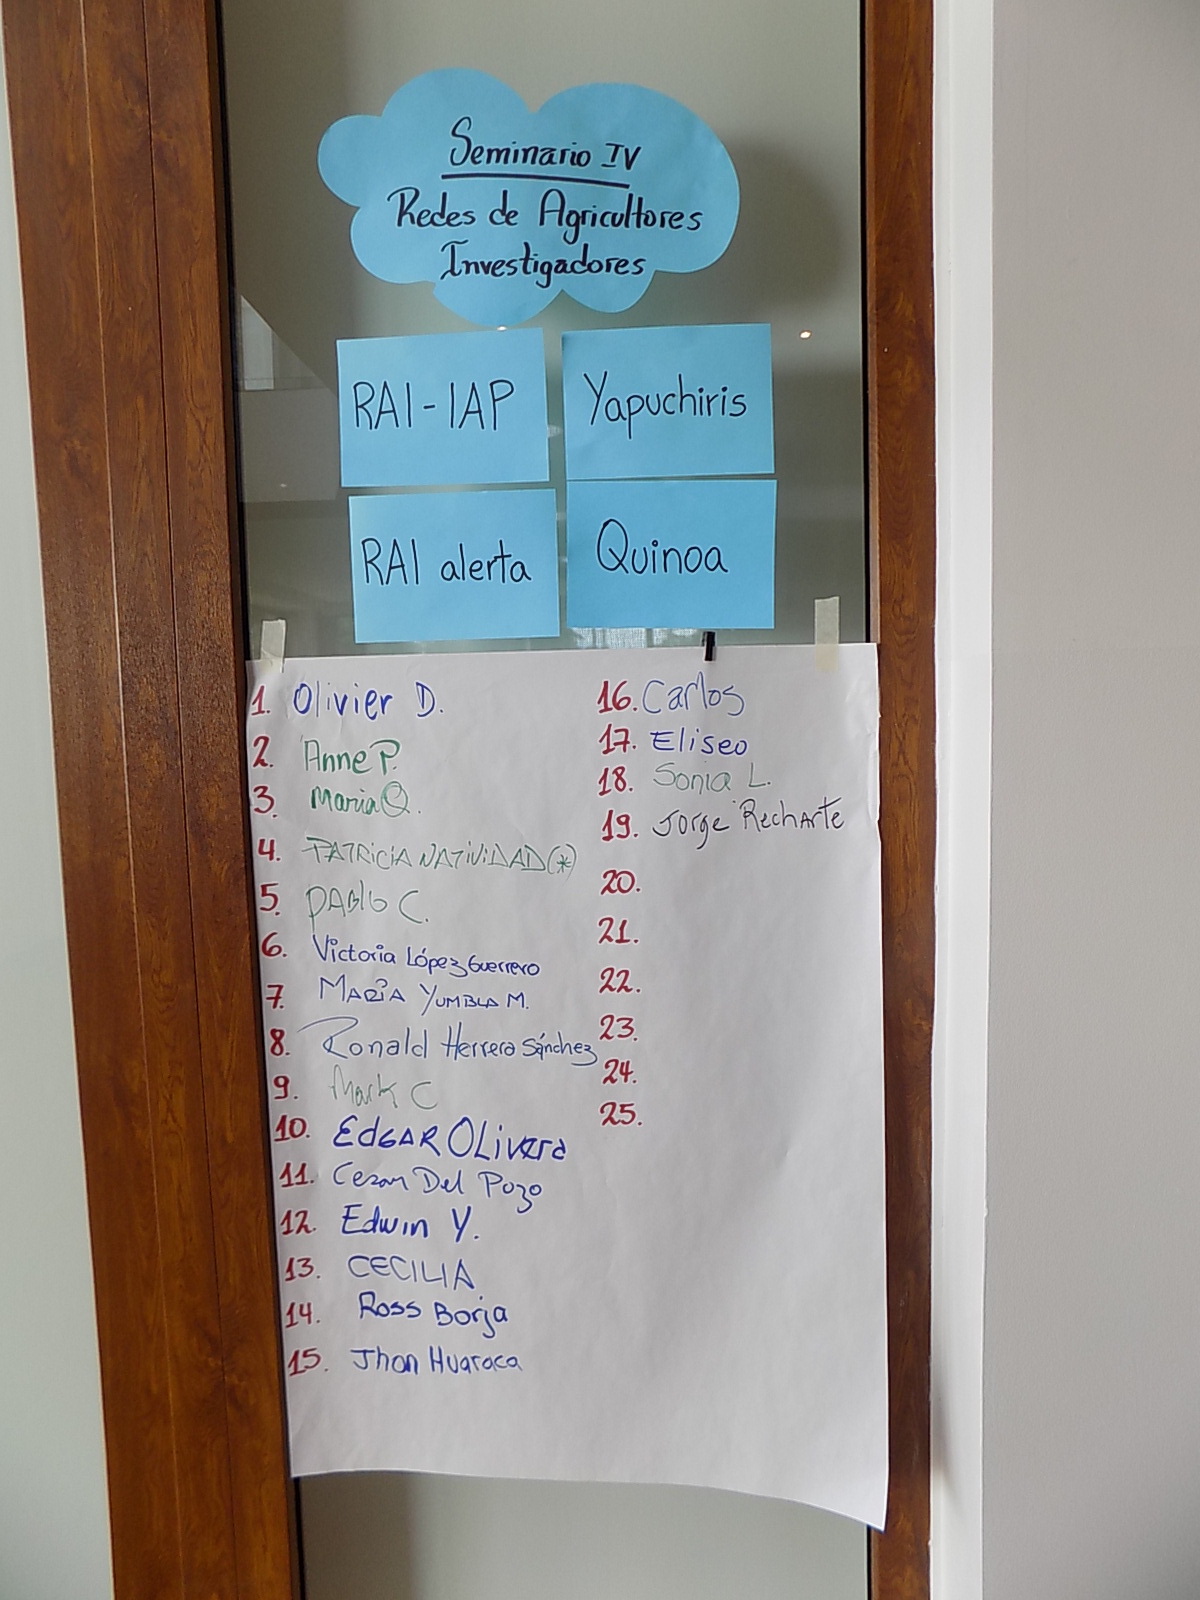 Seminario IV
Redes de Agricultores
Investigadores
RAI-IAP
Yapuchiris
RAI alerta
Quinoa
1. Olivier D.
2. Anne P.
3. Maria Q.
4. PATRICIA NATIVIDAD (*)
5. PABlo C.
6. Victoria López Guerrero
7. MARÍA YUMBLA M.
8. Ronald Herrera Sánchez
9. Mark C
10. EdGAR OLivera
11. Cesar Del Pozo
12. Edwin Y.
13. CECILIA
14. Ross Borja
15. Jhon Huaraca
16. Carlos
17. Eliseo
18. Sonia L.
19. Jorge RechArte
20.
21.
22.
23.
24.
25.